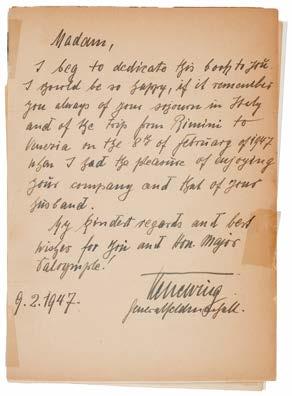 Madam,
I beg to dedicate this book to you
I should be so happy, if it remember
you always of your sojourn in Italy
and of the trip from Rimini to
Venezia on the 8th of february of 1947
when I had the pleasure of enjoying
your company and that of your
husband.
My kindest regards and best
wishes for you and Hon Major
Dalrymple.
9.2.1947.
Generalfeldmarschall.